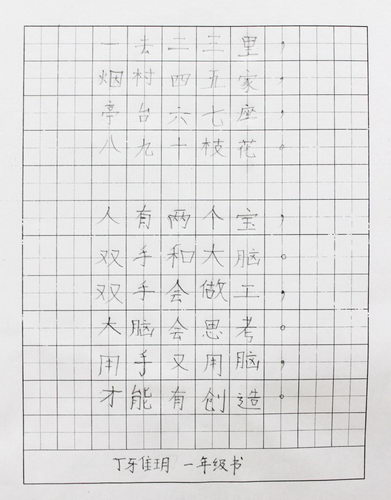 一去二三里，
烟村四五家，
亭台六七座，
八九十枝花。
人有两个宝，
双手和大脑。
双手会做工，
大脑会思考。
用手又用脑，
才能有创造。
丁牙隹玥 一年级书